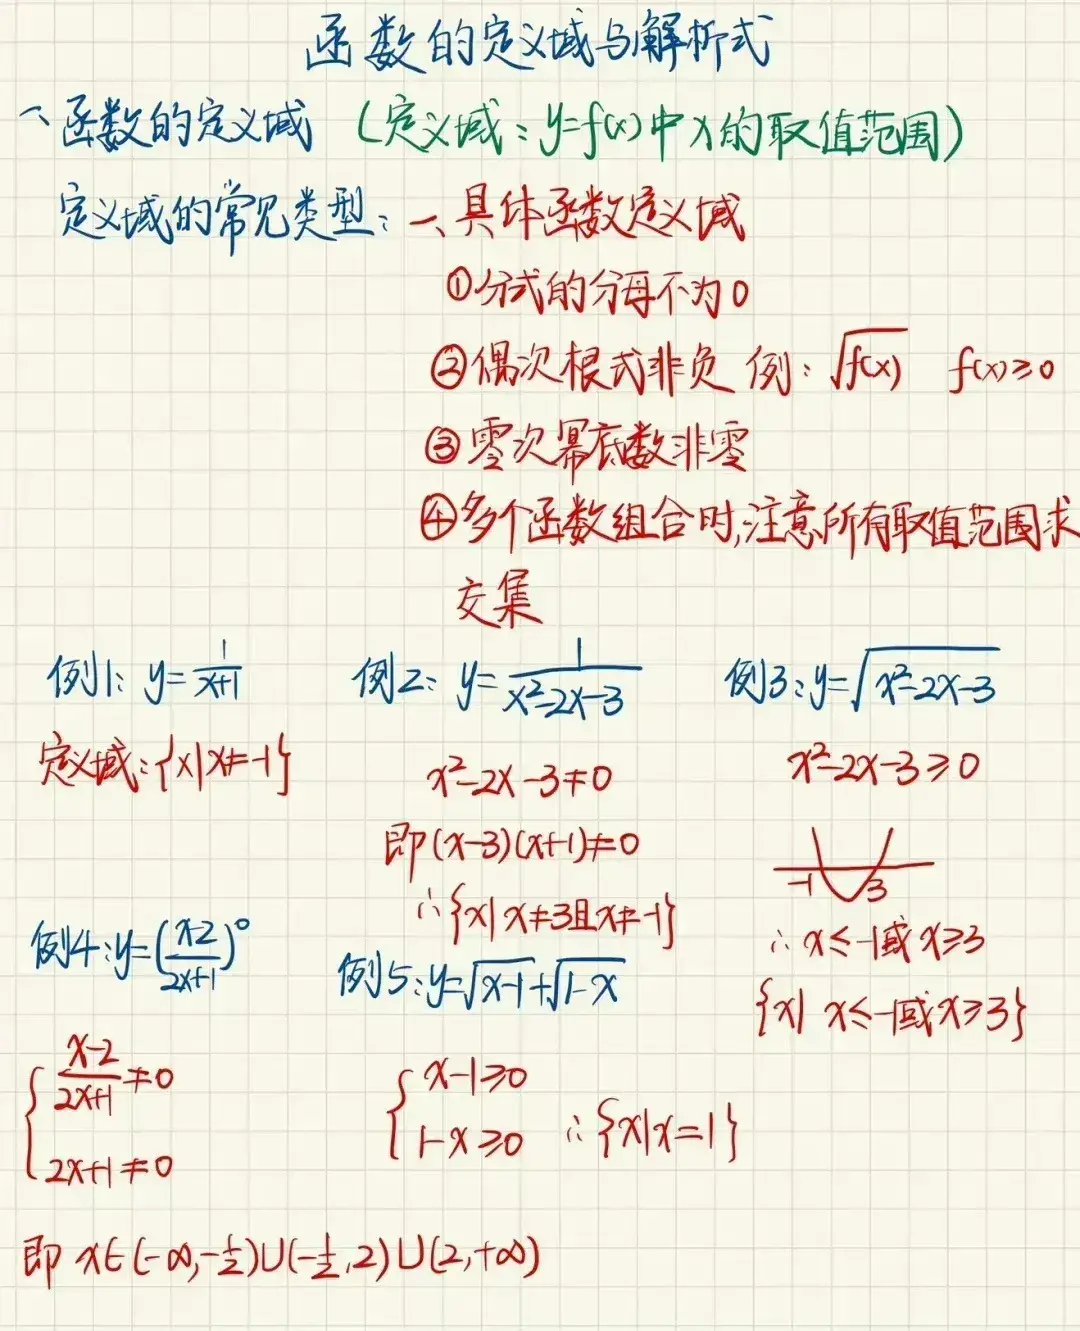 函数的定义域与解析式
一、函数的定义域 (定义域：y=f(x)中x的取值范围)
定义域的常见类型：一、具体函数定义域
①分式的分母不为0
②偶次根式非负 例：√f(x) f(x)≥0
③零次幂底数非零
④多个函数组合时,注意所有取值范围求
交集
例1：y=1/(x+1)
定义域：{x|x≠-1}
例2：y=1/(x²-2x-3)
x²-2x-3≠0
即(x-3)(x+1)≠0
∴{x|x≠3且x≠-1}
例3：y=√(x²-2x-3)
x²-2x-3≥0
-1 3
∴x≤-1或x≥3
{x| x≤-1或x≥3}
例4：y=((x-2)/(2x+1))⁰
{(x-2)/(2x+1)≠0
2x+1≠0
即 x∈(-∞,-1/2)∪(-1/2,2)∪(2,+∞)
例5：y=√(x-1)+√(1-x)
{x-1≥0
1-x≥0 ∴{x|x=1}